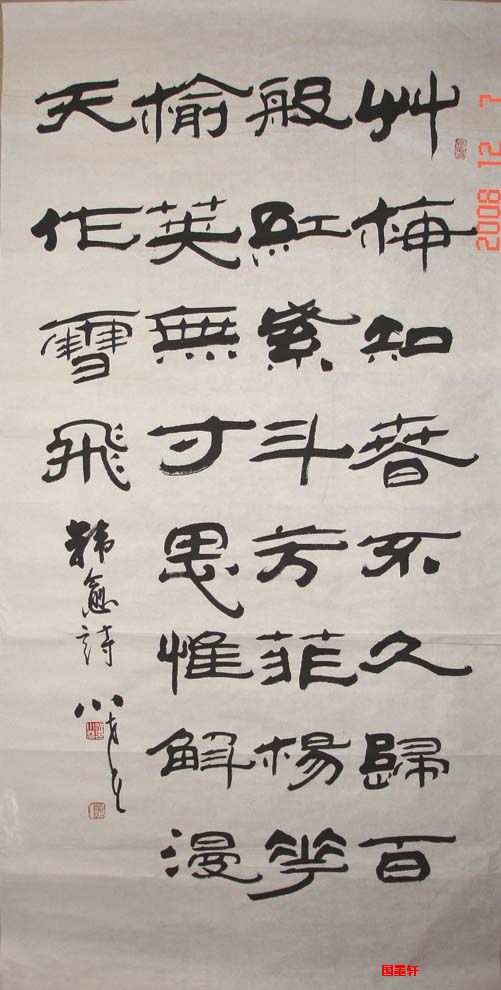 艸梅知春不久歸百
般紅紫斗芳菲楊花
榆英無寸思惟解漫
天作雪飛
韓愈詩
2008 12 7
国墨轩